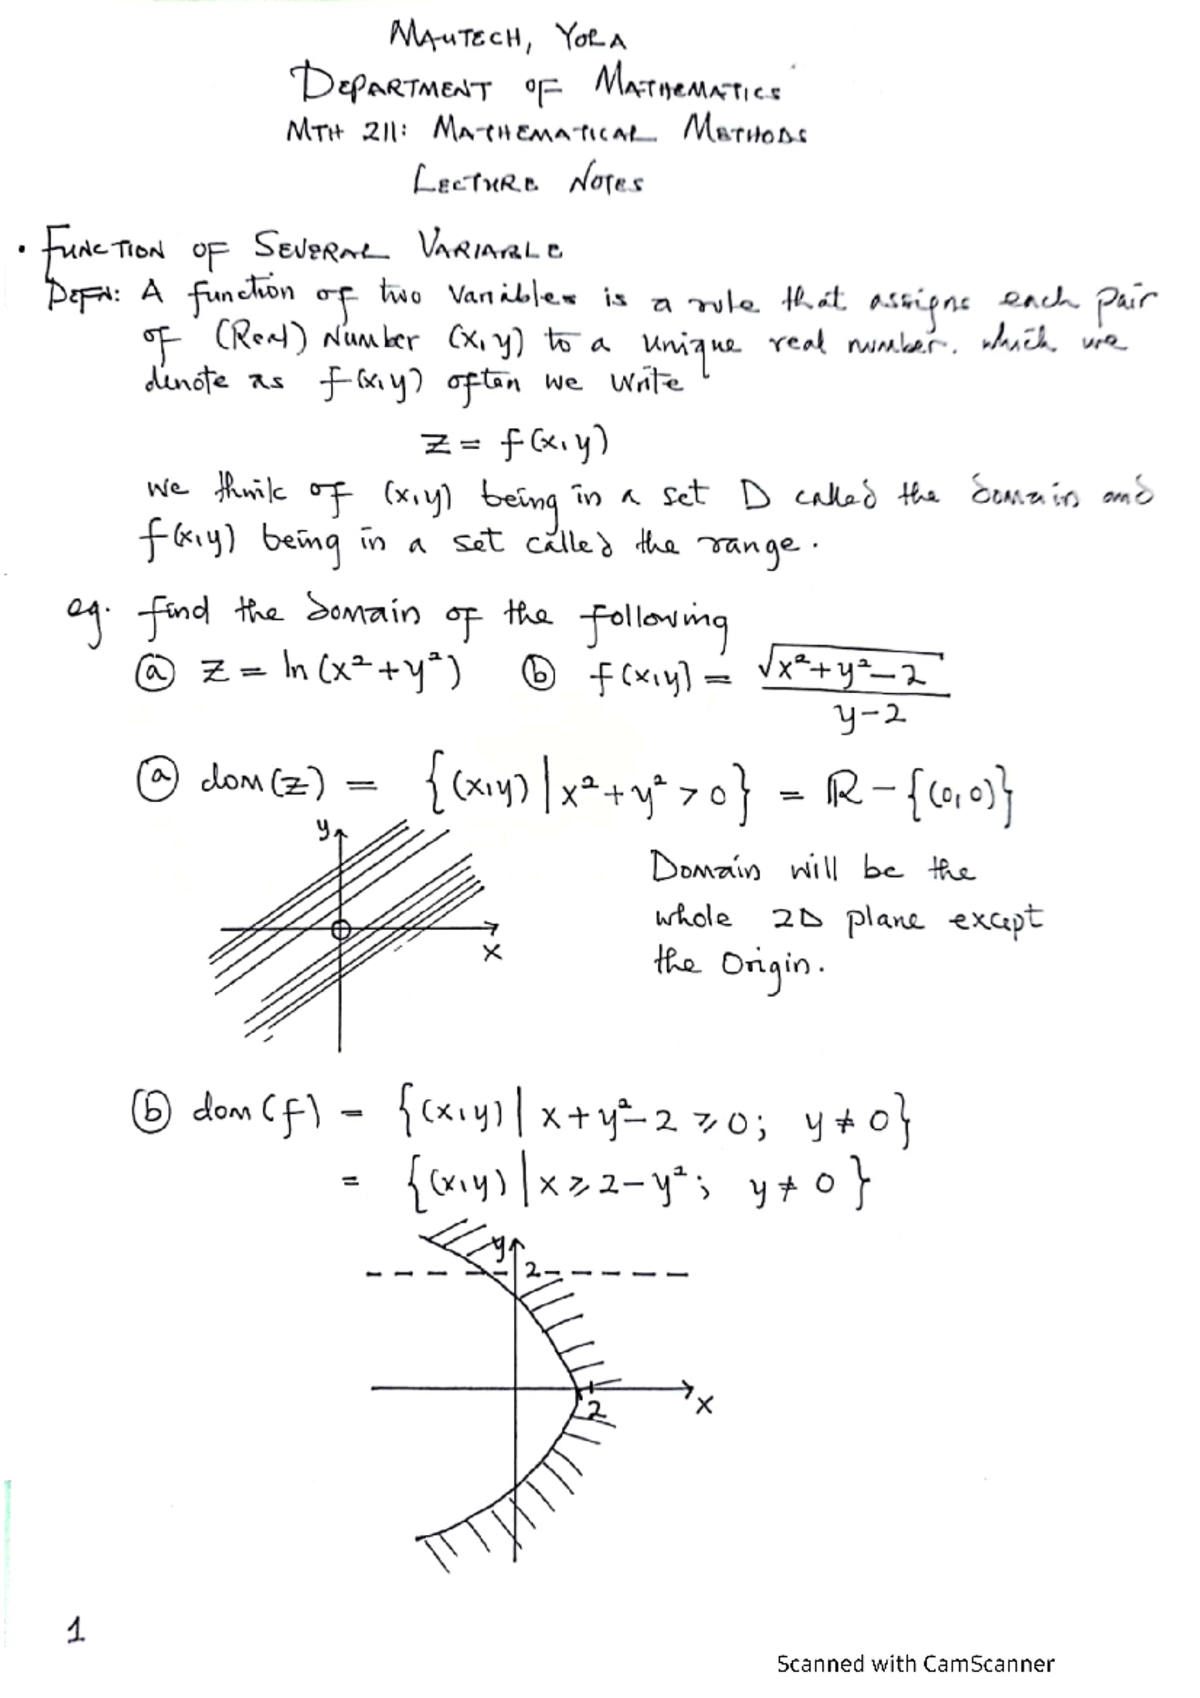 MAUTECH, YOLA
DEPARTMENT OF MATHEMATICS
MTH 211: MATHEMATICAL METHODS
LECTURE NOTES
• FUNCTION OF SEVERAL VARIABLE
DEFN: A function of two Variables is a rule that assigns each pair
of (Real) Number (x,y) to a unique real number. which we
denote as f(x,y) often we write
z = f(x,y)
we think of (x,y) being in a set D called the domain and
f(x,y) being in a set called the range.
eg. find the domain of the following
ⓐ z = ln(x²+y²) ⓑ f(x,y) = √(x²+y²-2) / (y-2)
ⓐ dom(z) = {(x,y) | x²+y² > 0} = ℝ - {(0,0)}
y
Domain will be the
whole 2D plane except
x
the Origin.
ⓑ dom(f) = {(x,y) | x+y²-2 ⩾ 0; y ≠ 0}
= {(x,y) | x ⩾ 2-y²; y ≠ 0}
y
2
x
2
1
Scanned with CamScanner